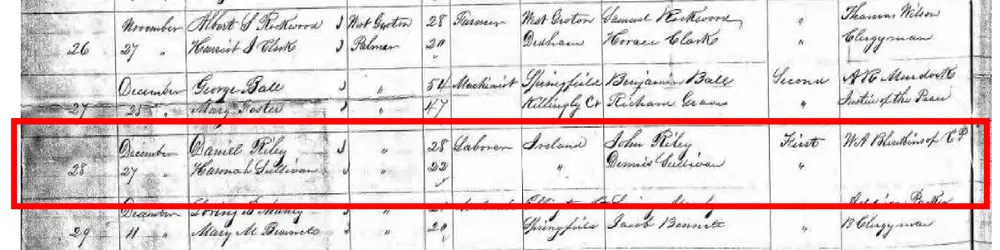 November Albert S Rockwood West Groton 28 Farmer West Groton Samuel Rockwood " Thomas Wilson
26 27 " Harriet S Clark Palmer 20 Dedham Horace Clark " Clergyman
December George Ball " 54 Machinist Springfield Benjamin Ball Second
27 25 " Mary Foster " 47 Killingly Ct Richard " Justice of the Peace
December Daniel Riley " 28 Laborer Ireland John Riley First
28 27 " Hannah Sullivan " 22 " Dennis Sullivan "
December
29 11 " Mary M " 20 Springfield Jacob Bennett " Clergyman